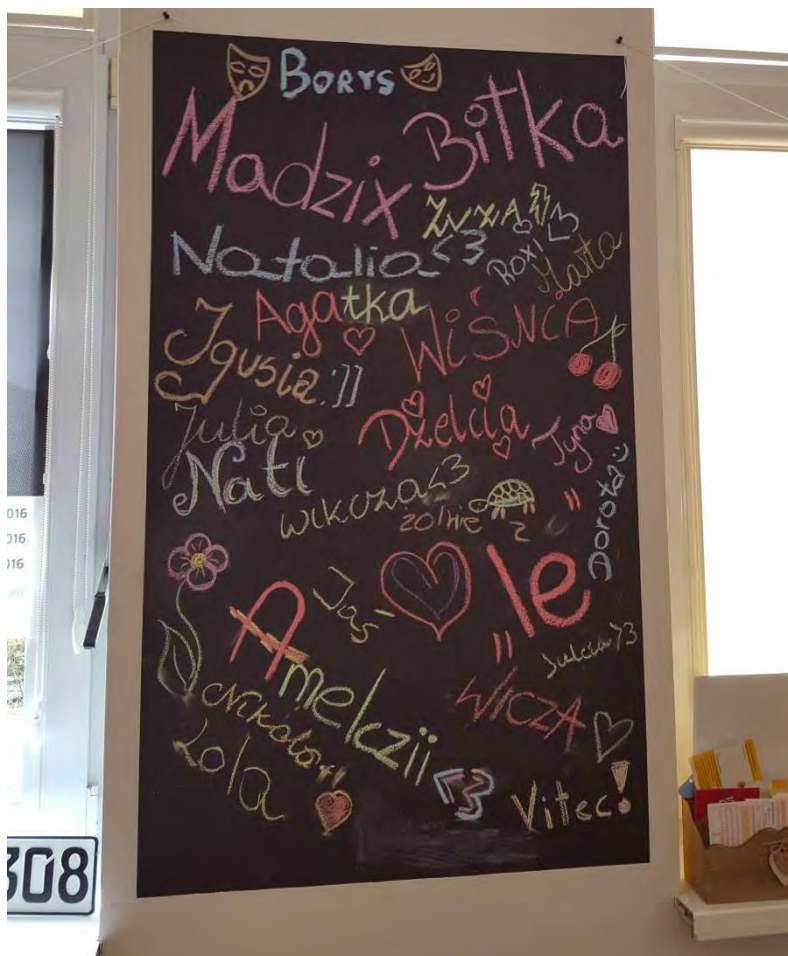 BORYS
Madzix
Bitka
ZUZA
Natalia <3
ROXI <3
Marta
Agatka
WIŚNIA
Igusia :]]
Julia
Dżelcia
Tyna
Nati
wikcza <3
Dorota :)
żółwie
2
"le"
Jaś
Amelczii <3
Julcia >3
WICZA
Nikola
Lola
Vitec!
2016
2016
2016
308